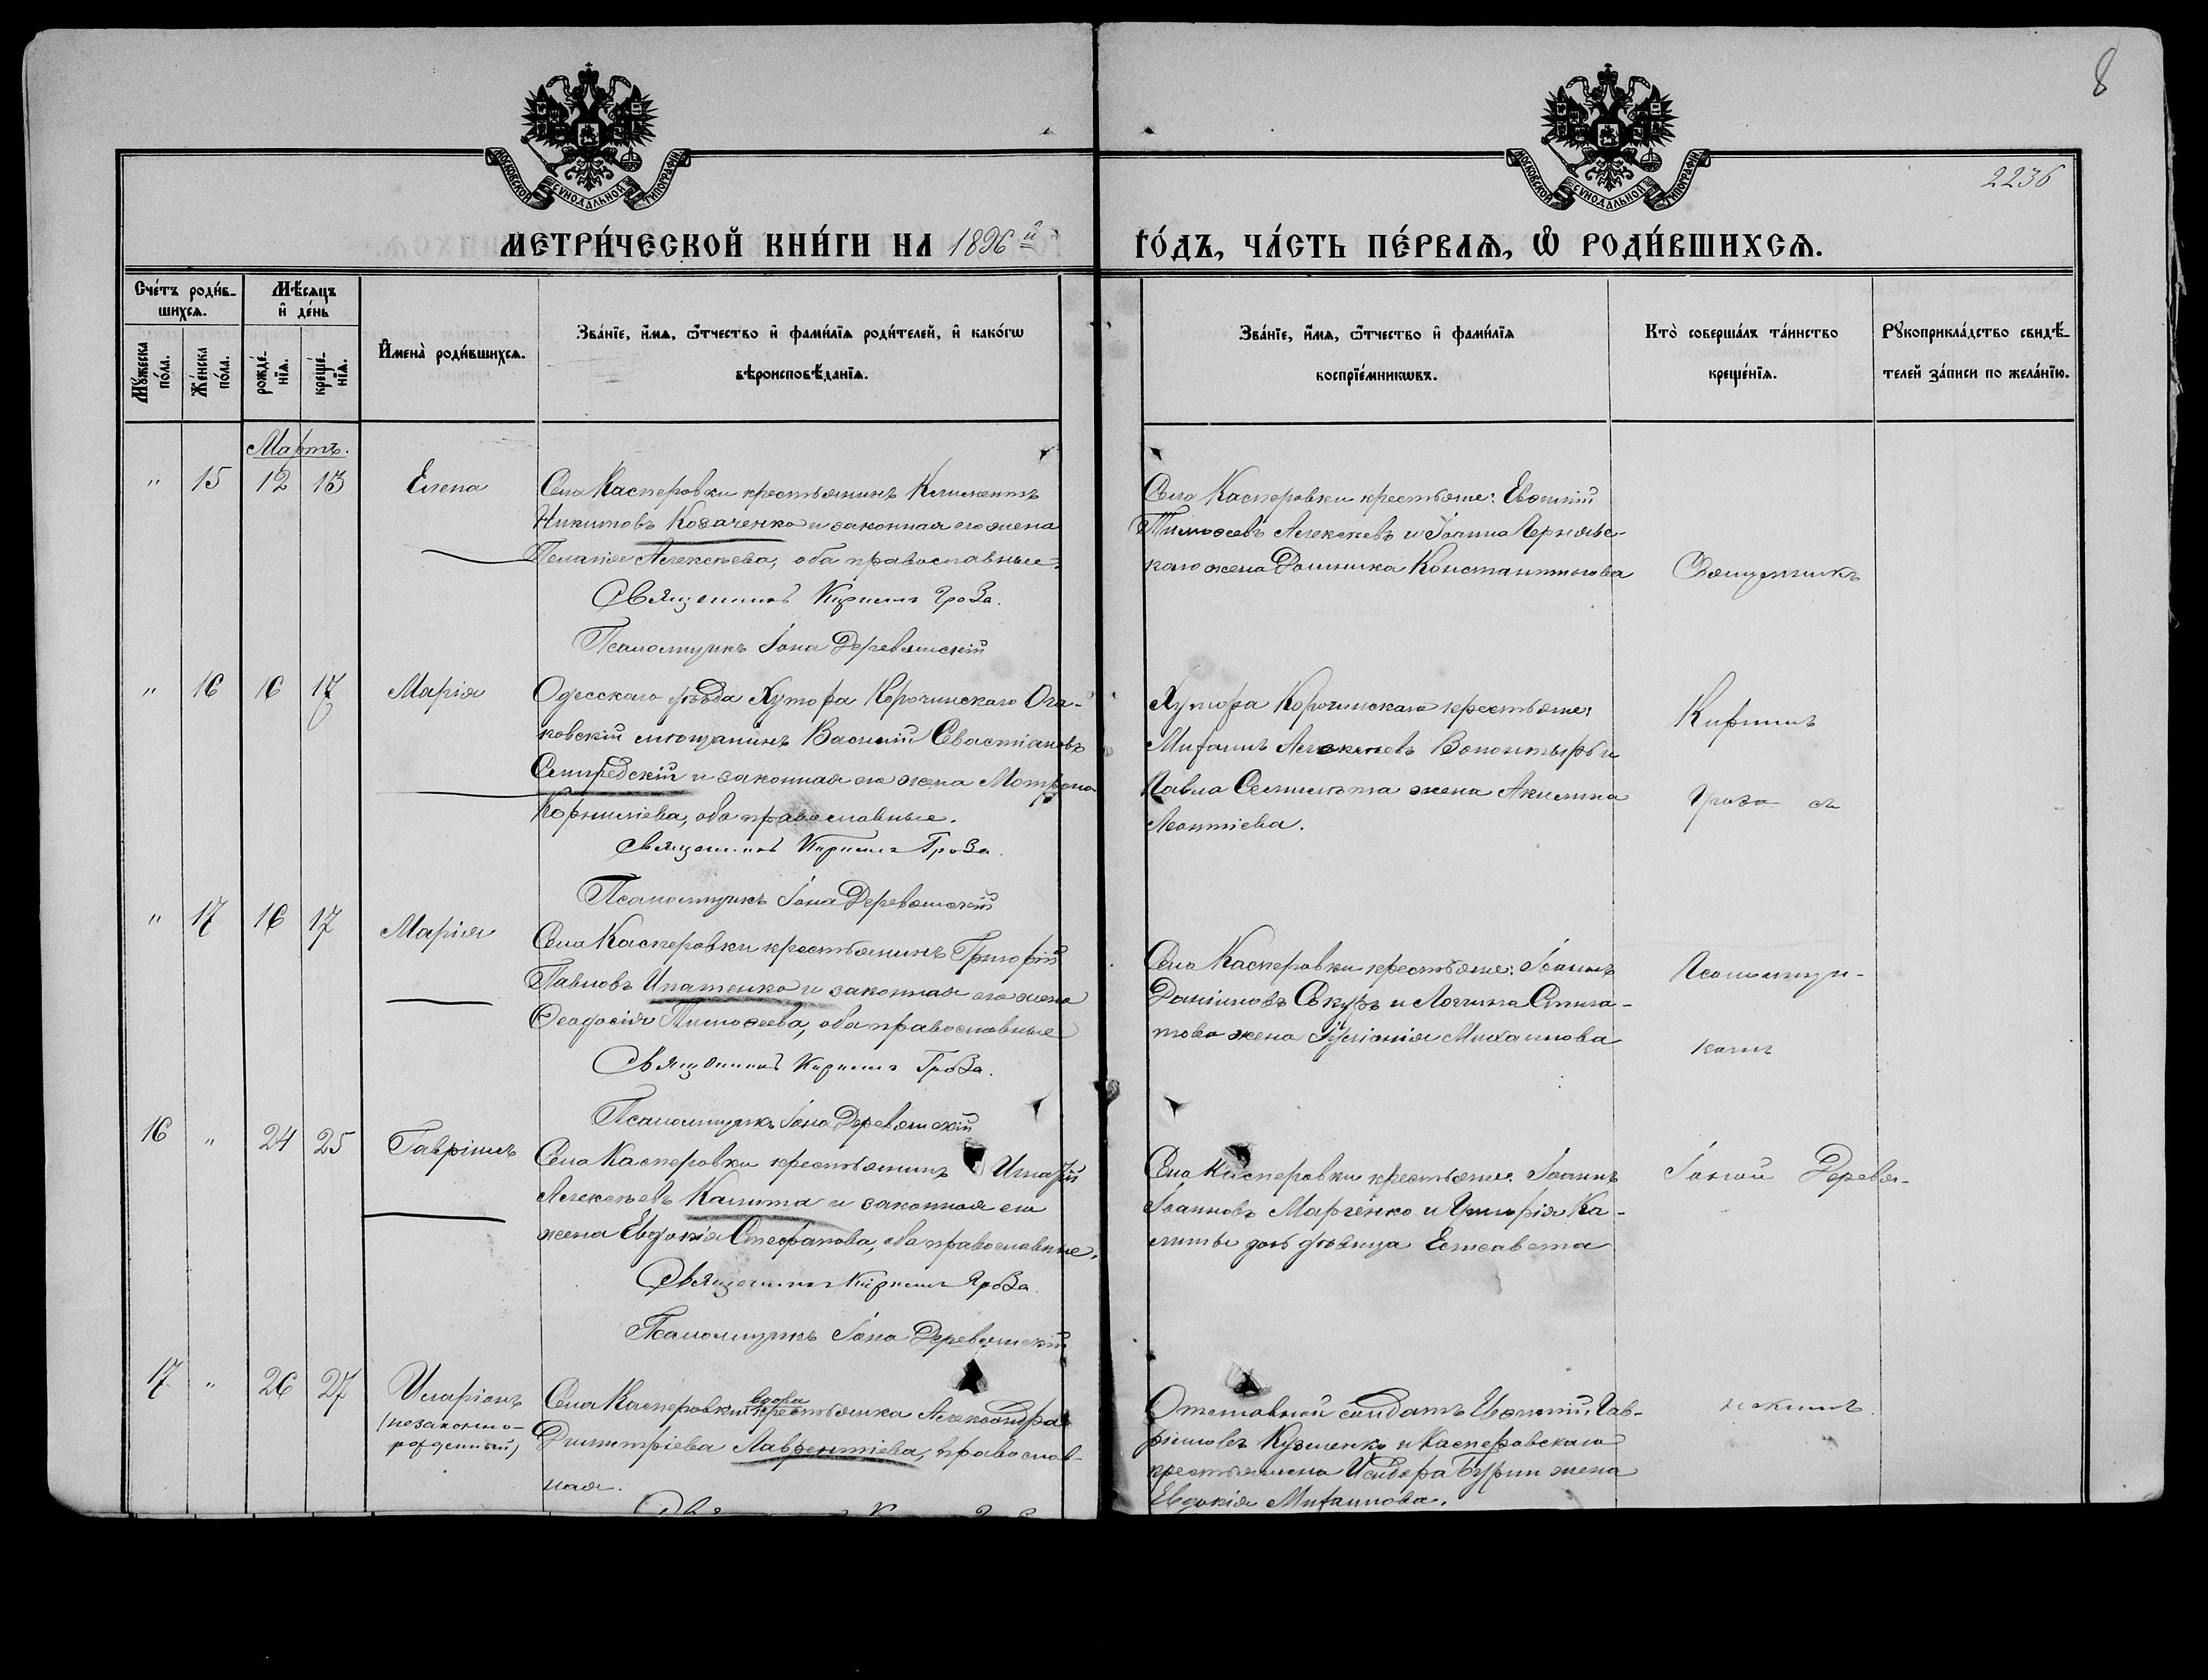 8
МОСКОВСКОЙ СѴНОДАЛЬНОЙ ТИПОГРАФІИ.
МОСКОВСКОЙ СѴНОДАЛЬНОЙ ТИПОГРАФІИ.
2236
МЕТРИ́ЧЕСКОЙ КНИ́ГИ НА 1896 й
ГО́ДЪ, ЧА́СТЬ ПЕ́РВАѦ, Ѡ҆ РОДИ́ВШИХСѦ.
Сче́тъ роди́в-
шихсѧ.
Мѣ́сѧцъ
и҆ де́нь
Мꙋ́жеска
по́ла.
Же́нска
по́ла.
рожде́-
нїѧ.
креще́-
нїѧ.
И҆мена̀ роди́вшихсѧ.
Зва́нїе, и҆́мѧ, ѻ҆́тчество и҆ фамилїѧ роди́телей, и҆ како́гѡ
вѣроисповѣ́данїѧ.
Зва́нїе, и҆́мѧ, ѻ҆́тчество и҆ фами́лїѧ
воспрїе́мникѡвъ.
Кто̀ соверша́лъ та́инство
креще́нїѧ.
Рꙋкоприкла́дство свидѣ́-
телей за́писи по жела́нїю.
Мартъ.
" 15 12 13 Елена
Села Касперовки крестьянинъ Климентъ
Никитовъ Козаченко и законная его жена
Пелагія Алексѣева, оба православные.
Священникъ Кириллъ Гроза.
Псаломщикъ Іона Деревянскій
Села Касперовки крестьяне: Евѳимій
Тимоѳеевъ Алексѣевъ и Іоанна Чернявс-
каго жена Домникa Константинова
Священникъ
" 16 16 17 Марія
Одесскаго уѣзда Хутора Корочинскаго Оча-
ковскій мѣщанинъ Василій Севастіановъ
и законная его жена Мотрона
Корниліева, оба православные.
Священникъ Кириллъ Гроза.
Псаломщикъ Іона Деревянскій
Хутора Корочинскаго крестьяне:
Михаилъ Алексѣевъ и
Павла жена Акилина
Леонтіева.
Кириллъ
Гроза съ
" 17 16 17 Марія
Села Касперовки крестьянинъ Григорій
Павловъ Ипатенко и законная его жена
Ѳеодосія Тимоѳеева, оба православные
Священникъ Кириллъ Гроза.
Псаломщикъ Іона Деревянскій
Села Касперовки крестьяне: Іоаннъ
Даніиловъ и Логгина
жена Іуліанія Михаилова
Псаломщи-
комъ
16 " 24 25 Гавріилъ
Села Касперовки крестьянинъ Игнатій
Алексѣевъ Калита и законная его
жена Евдокія Стефанова, оба православные.
Священникъ Кириллъ Гроза.
Псаломщикъ Іона Деревянскій
Села Касперовки крестьяне: Іоаннъ
Іоанновъ Марченко и Григорія Ка-
литы дочь дѣвица Елисавета
Іоной Деревя-
17 " 26 27 Иларіонъ
(незаконно-
рожденный)
вдова
Села Касперовки крестьянка Александра
Димитріева Лаврентіева, православ-
ная.
Отставной солдатъ Евѳимій Гав-
ріиловъ Кузменко и Касперовскаго
крестьянина Исидора жена
Евдокія Михаилова.
нскимъ.